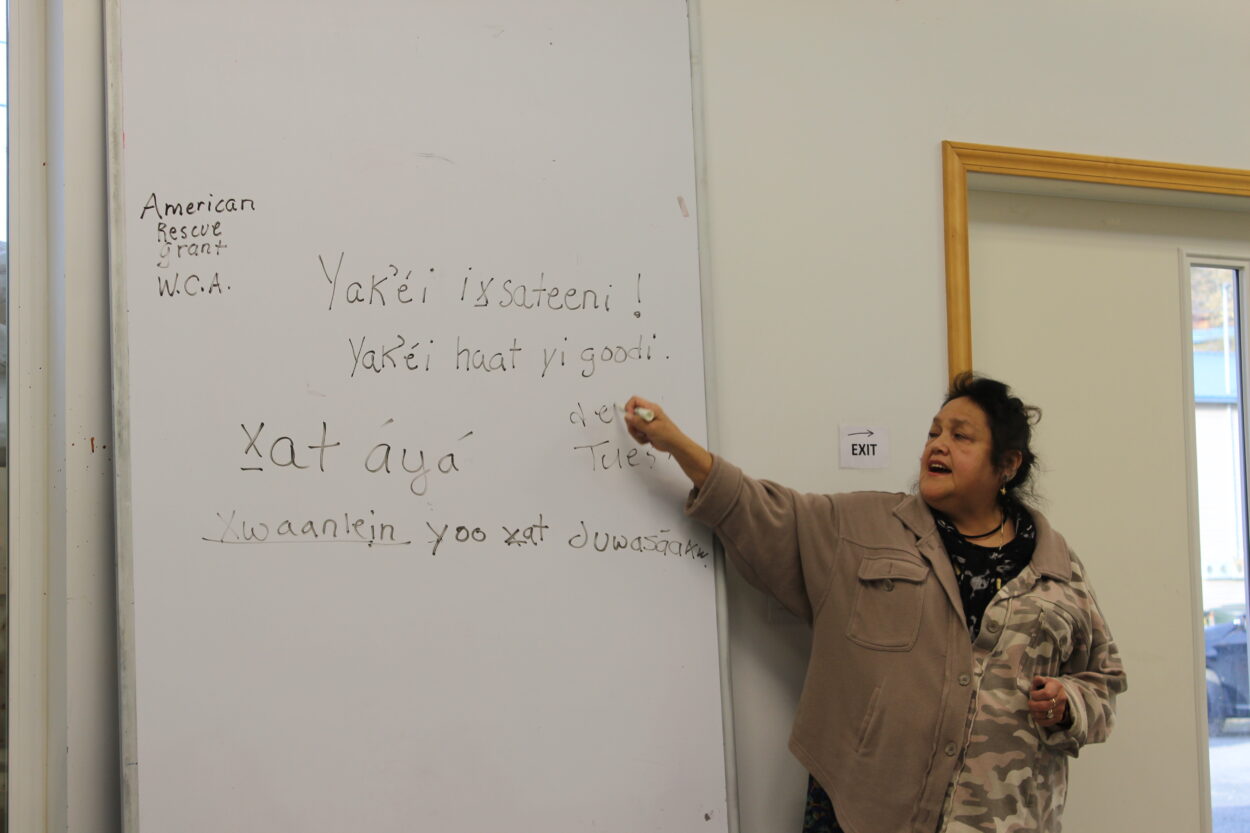 American
Rescue
grant
W.C.A.
Yak'éi ix̱sateeni!
Yak'éi haat yi goodi.
x̱at áyá
Xwaanlei̱n yoo x̱at duwasáakw.
EXIT